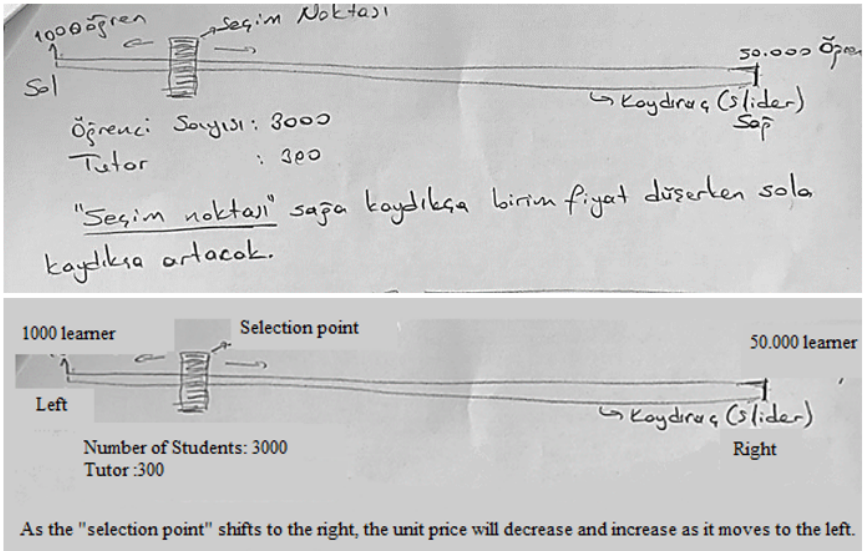 1000 öğren
Seçim Noktası
50.000 Öğren
Sol
Kaydıraç (slider)
Sağ
Öğrenci Sayısı: 3000
Tutor : 300
"Seçim noktası" sağa kaydıkça birim fiyat düşerken sola
kaydıkça artacak.
1000 learner
Selection point
50.000 learner
Left
Kaydıraç (slider)
Right
Number of Students: 3000
Tutor :300
As the "selection point" shifts to the right, the unit price will decrease and increase as it moves to the left.